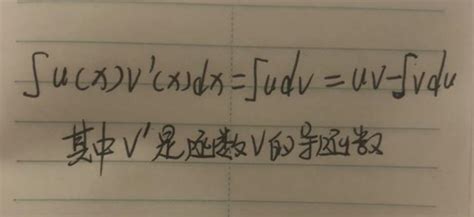 ∫u(x)v'(x)dx=∫udv=uv-∫vdu
其中v'是函数v的导函数